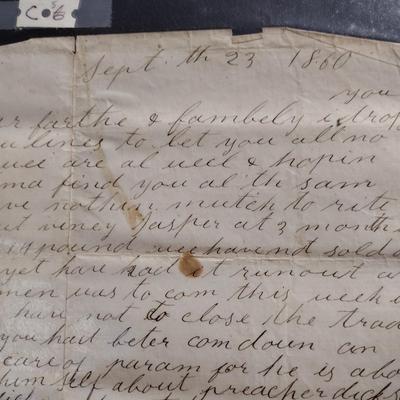 C 5/6
Sept th 23 1860
you
er farthe & fambely i drop
lines to let you all no
wei are al well & hopin
ma find you al th sam
ve nothin mutch to rite
ut viney Jasper at 3 month
19 pound wee have not sold o
yet have had it runout a
men was to com this week
have not to close the trad
you had beter com down an
care of param for he is abo
him self about preacher dicks